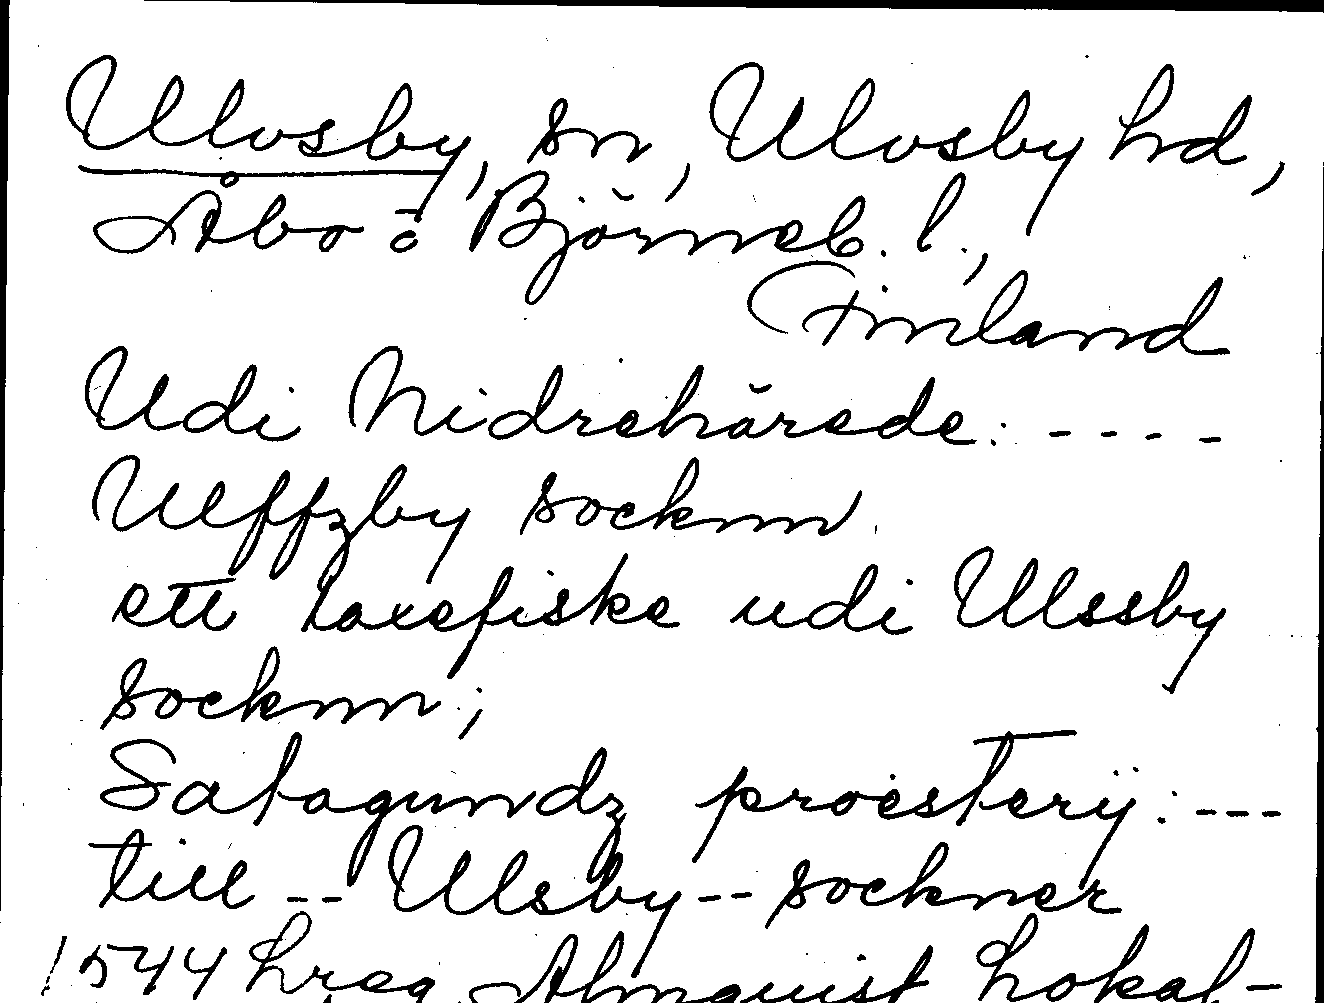 Ulvsby, sn, Ulvsby hd,
Åbo o Björneb. l.,
Finland
Udi Nidrehärede: ----
Ulffzby socknn
ett Laxefiske udi Ulssby
socknn;
Satagundz proesterÿ: ---
till -- Ulsby -- sockner
1544 hreg Almquist Lokal-